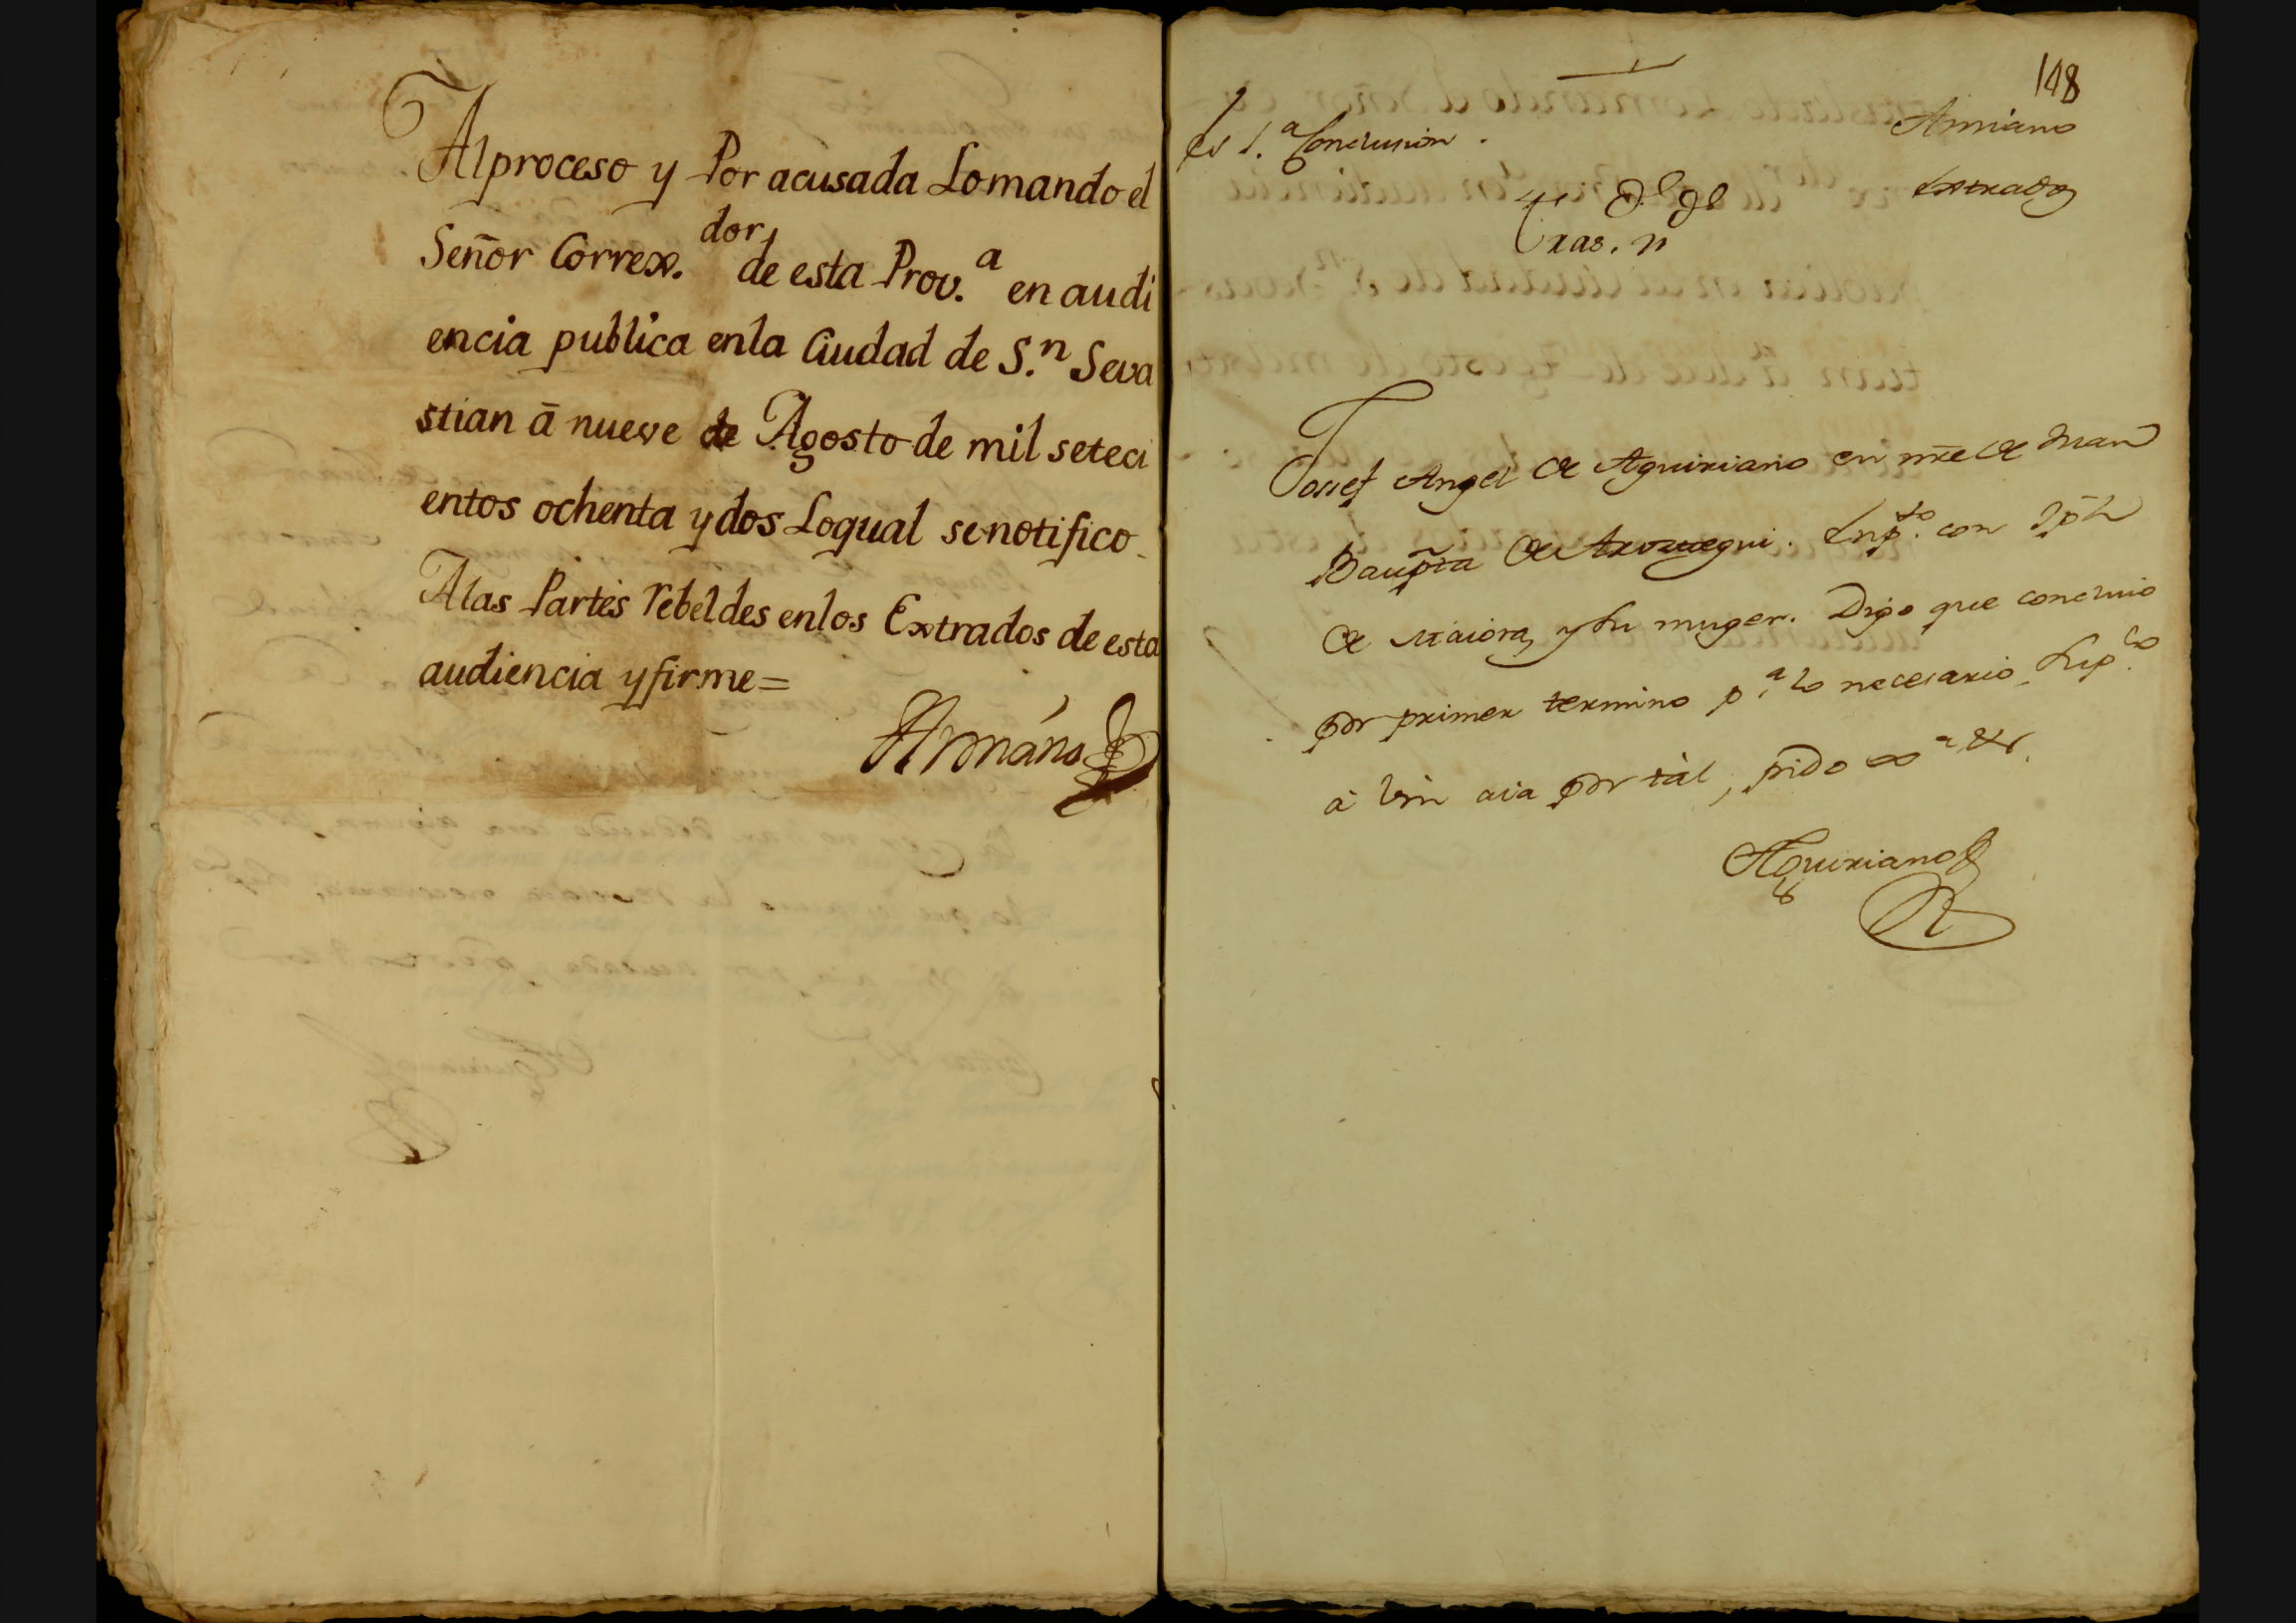 Alproceso y Por acusada Lomando el
Señor Correx.dor de esta Prov.a en audi
encia publica enla Ciudad de S.n Seva
stian ā nueve de Agosto de mil seteci
entos ochenta y dos Loqual se notifico
Alas Partes rebeldes enlos Extrados de esta
audiencia y firme=
148
es 1.a Conclusion.
Extrados
Josef Angel de Aguiriano en nre de Juan
Baupta de
de y su muger. Digo que concluio
por primer termino p.a lo necesario Sup.co
à Vm aia por tàl, pido
Aguiriano